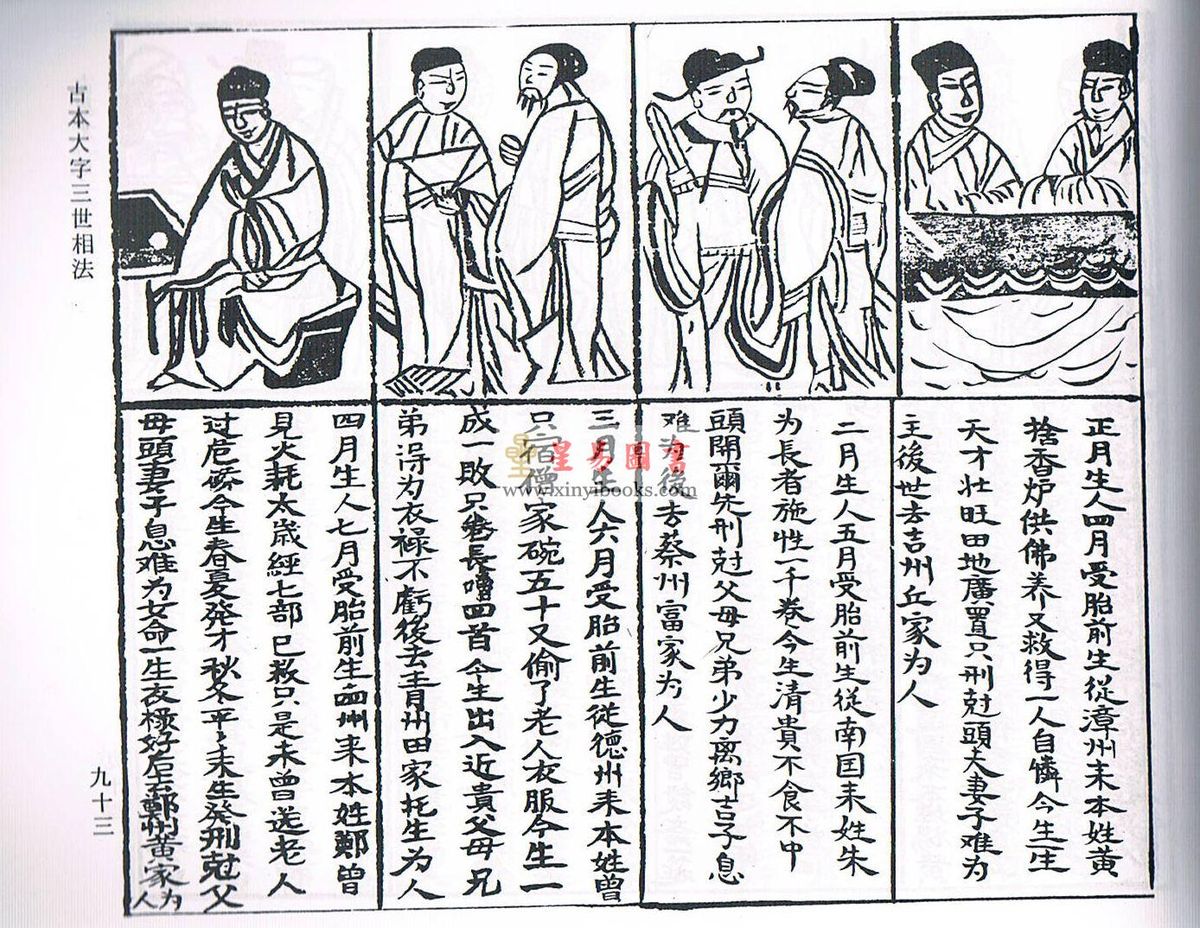 古本大字三世相法
正月生人四月受胎前生從漳州来本姓黄
捨香炉供佛养又救得一人自憐今生生
天才壮旺田地廣置只刑尅頭夫妻子难为
主後世去吉州丘家为人
二月生人五月受胎前生從南国来姓朱
为長者施牲一千卷今生清貴不食不中
頭開爾先刑尅父母兄弟少力离鄉吉子息
难为後去蔡州富家为人
三月生人六月受胎前生從德州来本姓曾
只宿僧家碗五十又偷了老人衣服今生一
成一敗只長四首今生出入近貴父母兄
弟淂为衣禄不虧後去青州田家托生为人
四月生人七月受胎前生州来本姓鄭曾
見火耗太歲經七部已救只是未曾送老人
过危桥今生春夏発才秋冬平々未生發刑尅父
母頭妻子息难为女命一生衣極好后至鄭州黄家为人
九十三
皇易圖書
www.xinyibooks.com